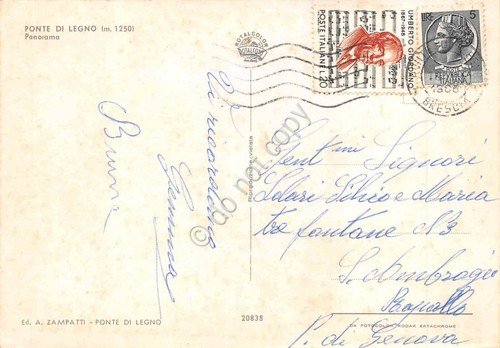 PONTE DI LEGNO (m. 1250)
Panorama
ROTALCOLOR
UMBERTO GIORDANO
1867-1948
POSTE ITALIANE L. 20
LIRE 5
BRESCIA
Vi ricordiamo
Gemma
Bruna
Gent mi Signori
Solari Silvio e Maria
tre fontane N 3
S. Ambrogio
Rapallo
P. di Genova
© do not copy
20838
Ed. A. ZAMPATTI - PONTE DI LEGNO
DA FOTOCOLOR KODAK EKTACHROME